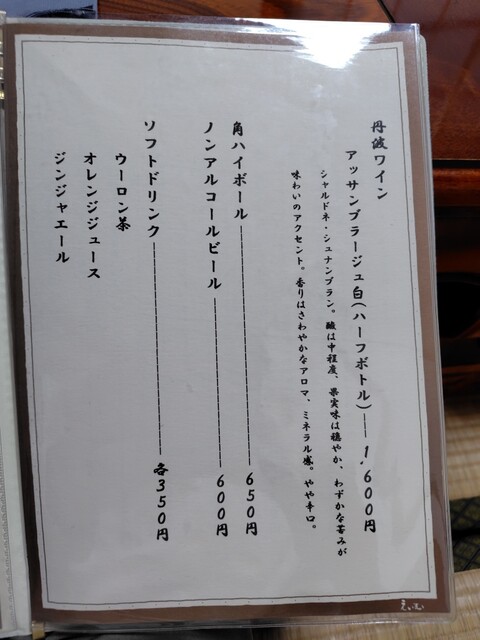 丹波ワイン
アッサンブラージュ白(ハーフボトル)―1,600円
シャルドネ・シュナンブラン。酸は中程度、果実味は穏やか、わずかな苦みが
味わいのアクセント。香りはさわやかなアロマ、ミネラル感。やや辛口。
角ハイボール―650円
ノンアルコールビール―600円
ソフトドリンク―各350円
ウーロン茶
オレンジジュース
ジンジャエール